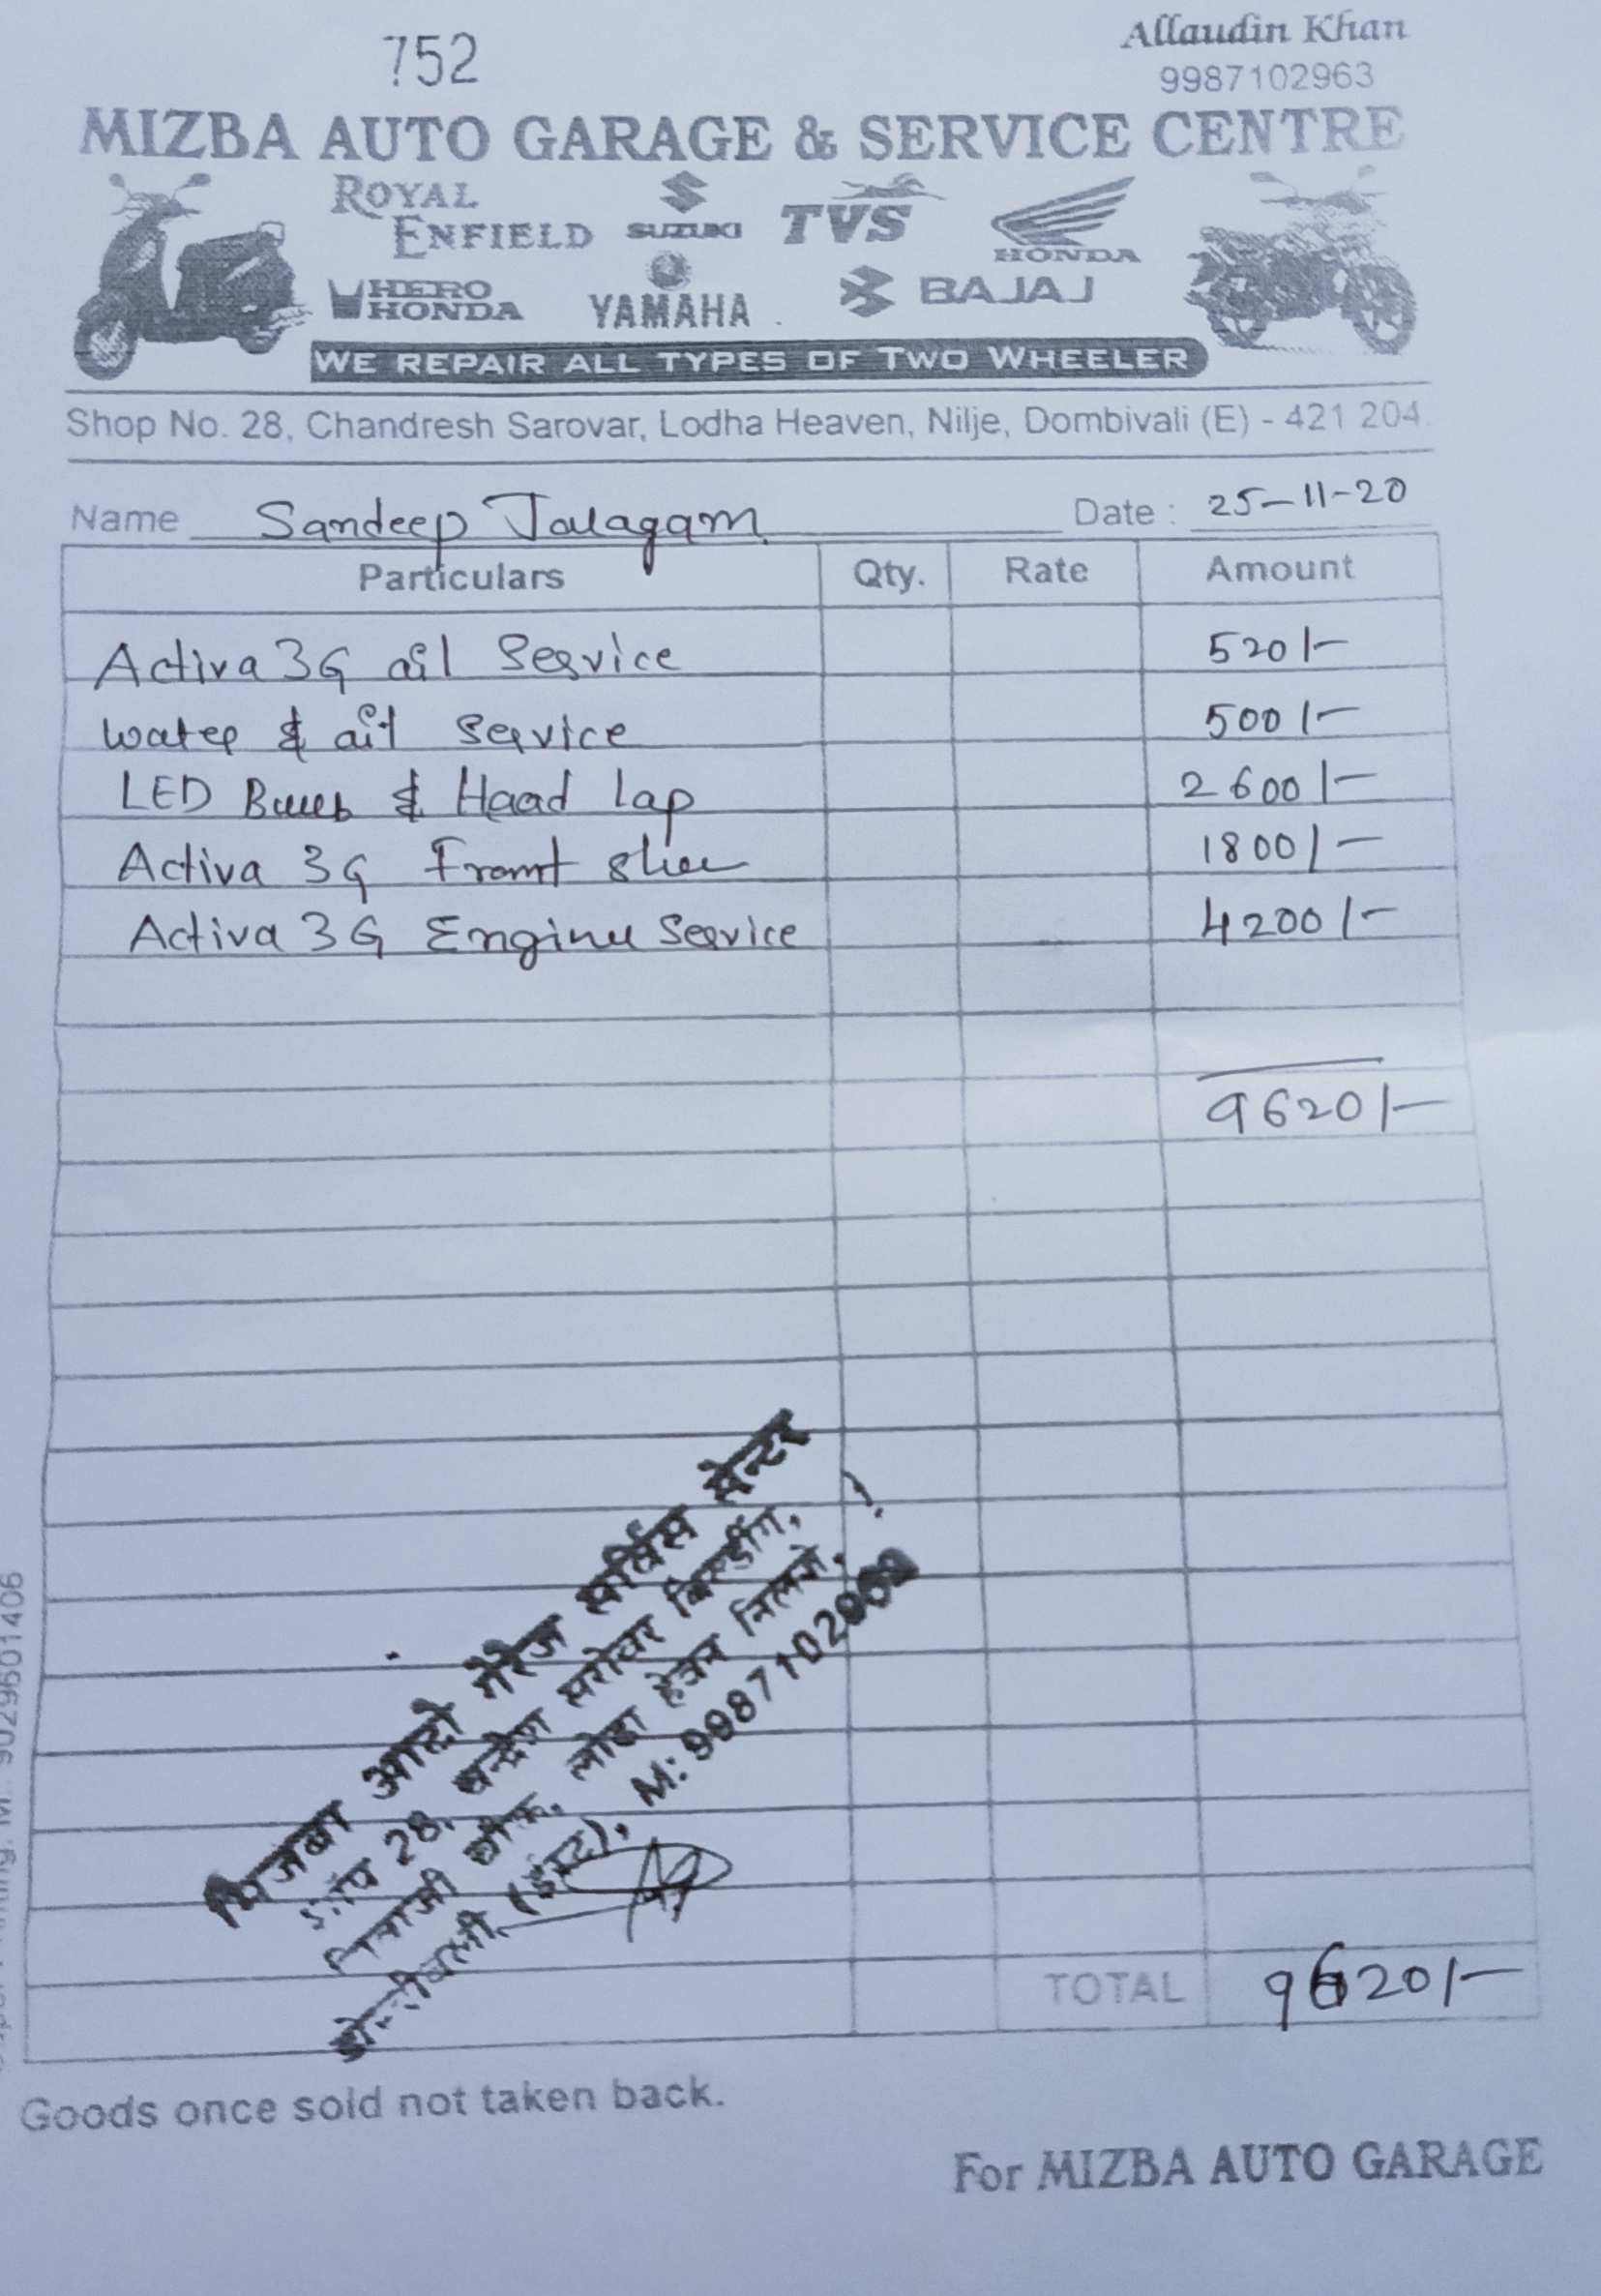 752
Allaudin Khan
9987102963
MIZBA AUTO GARAGE & SERVICE CENTRE
ROYAL ENFIELD
SUZUKI
TVS
HONDA
HERO HONDA
YAMAHA
BAJAJ
WE REPAIR ALL TYPES OF TWO WHEELER
Shop No. 28, Chandresh Sarovar, Lodha Heaven, Nilje, Dombivali (E) - 421 204.
Name Sandeep Jalagam Date : 25-11-20
Particulars Qty. Rate Amount
Activa 3G oil Service 520/-
Water & oil Service 500/-
LED & Haad lap 2600/-
Activa 3G Front 1800/-
Activa 3G Service 4200/-
9620/-
मिजबा आटो गॅरेज सर्विस सेन्टर
28, चन्द्रेश सरोवर बिल्डींग,
शिवाजी चौक, लोढा हेवन निलजे,
डोम्बीवली (ईस्ट), M: 99871029
TOTAL 9620/-
Goods once sold not taken back.
For MIZBA AUTO GARAGE
M.: 9029601406